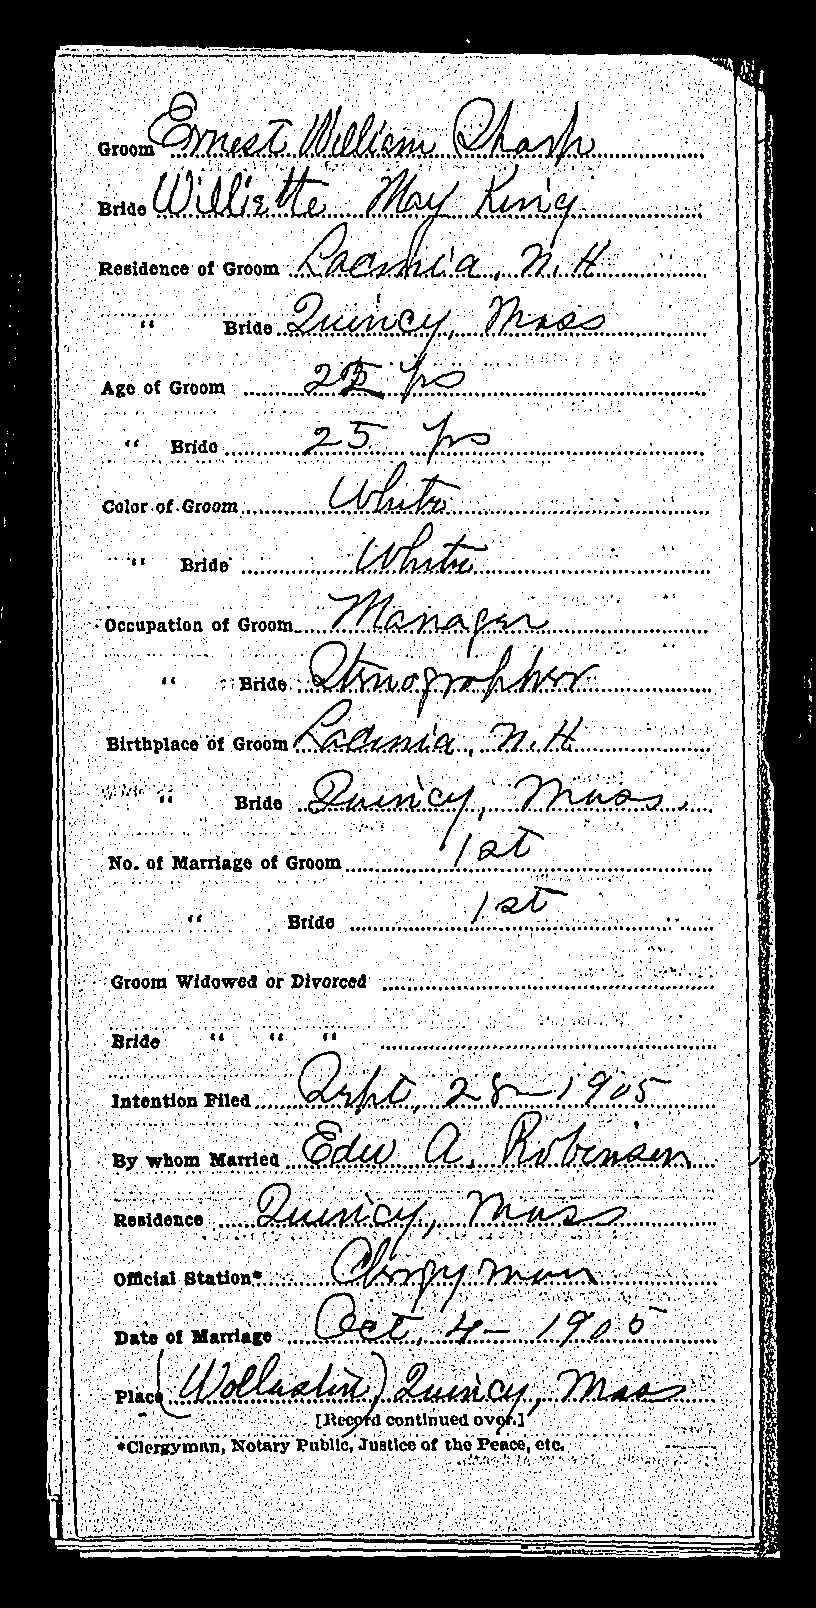 Groom Ernest William Sharp
Bride Williette May King
Residence of Groom Laconia, N. H.
" Bride Quincy, Mass
Age of Groom yrs
" Bride 25 yrs
Color of Groom White
" Bride White
Occupation of Groom Manager
" Bride Stenographer
Birthplace of Groom Laconia, N. H.
" Bride Quincy, Mass.
No. of Marriage of Groom 1st
" Bride 1st
Groom Widowed or Divorced
Bride " " "
Intention Filed Sept. 28 - 1905
By whom Married Edw A. Robinson
Residence Quincy, Mass
Official Station* Clergyman
Date of Marriage Oct. 4 - 1905
Place (Wollaston) Quincy, Mass
[Record continued over.]
*Clergyman, Notary Public, Justice of the Peace, etc.